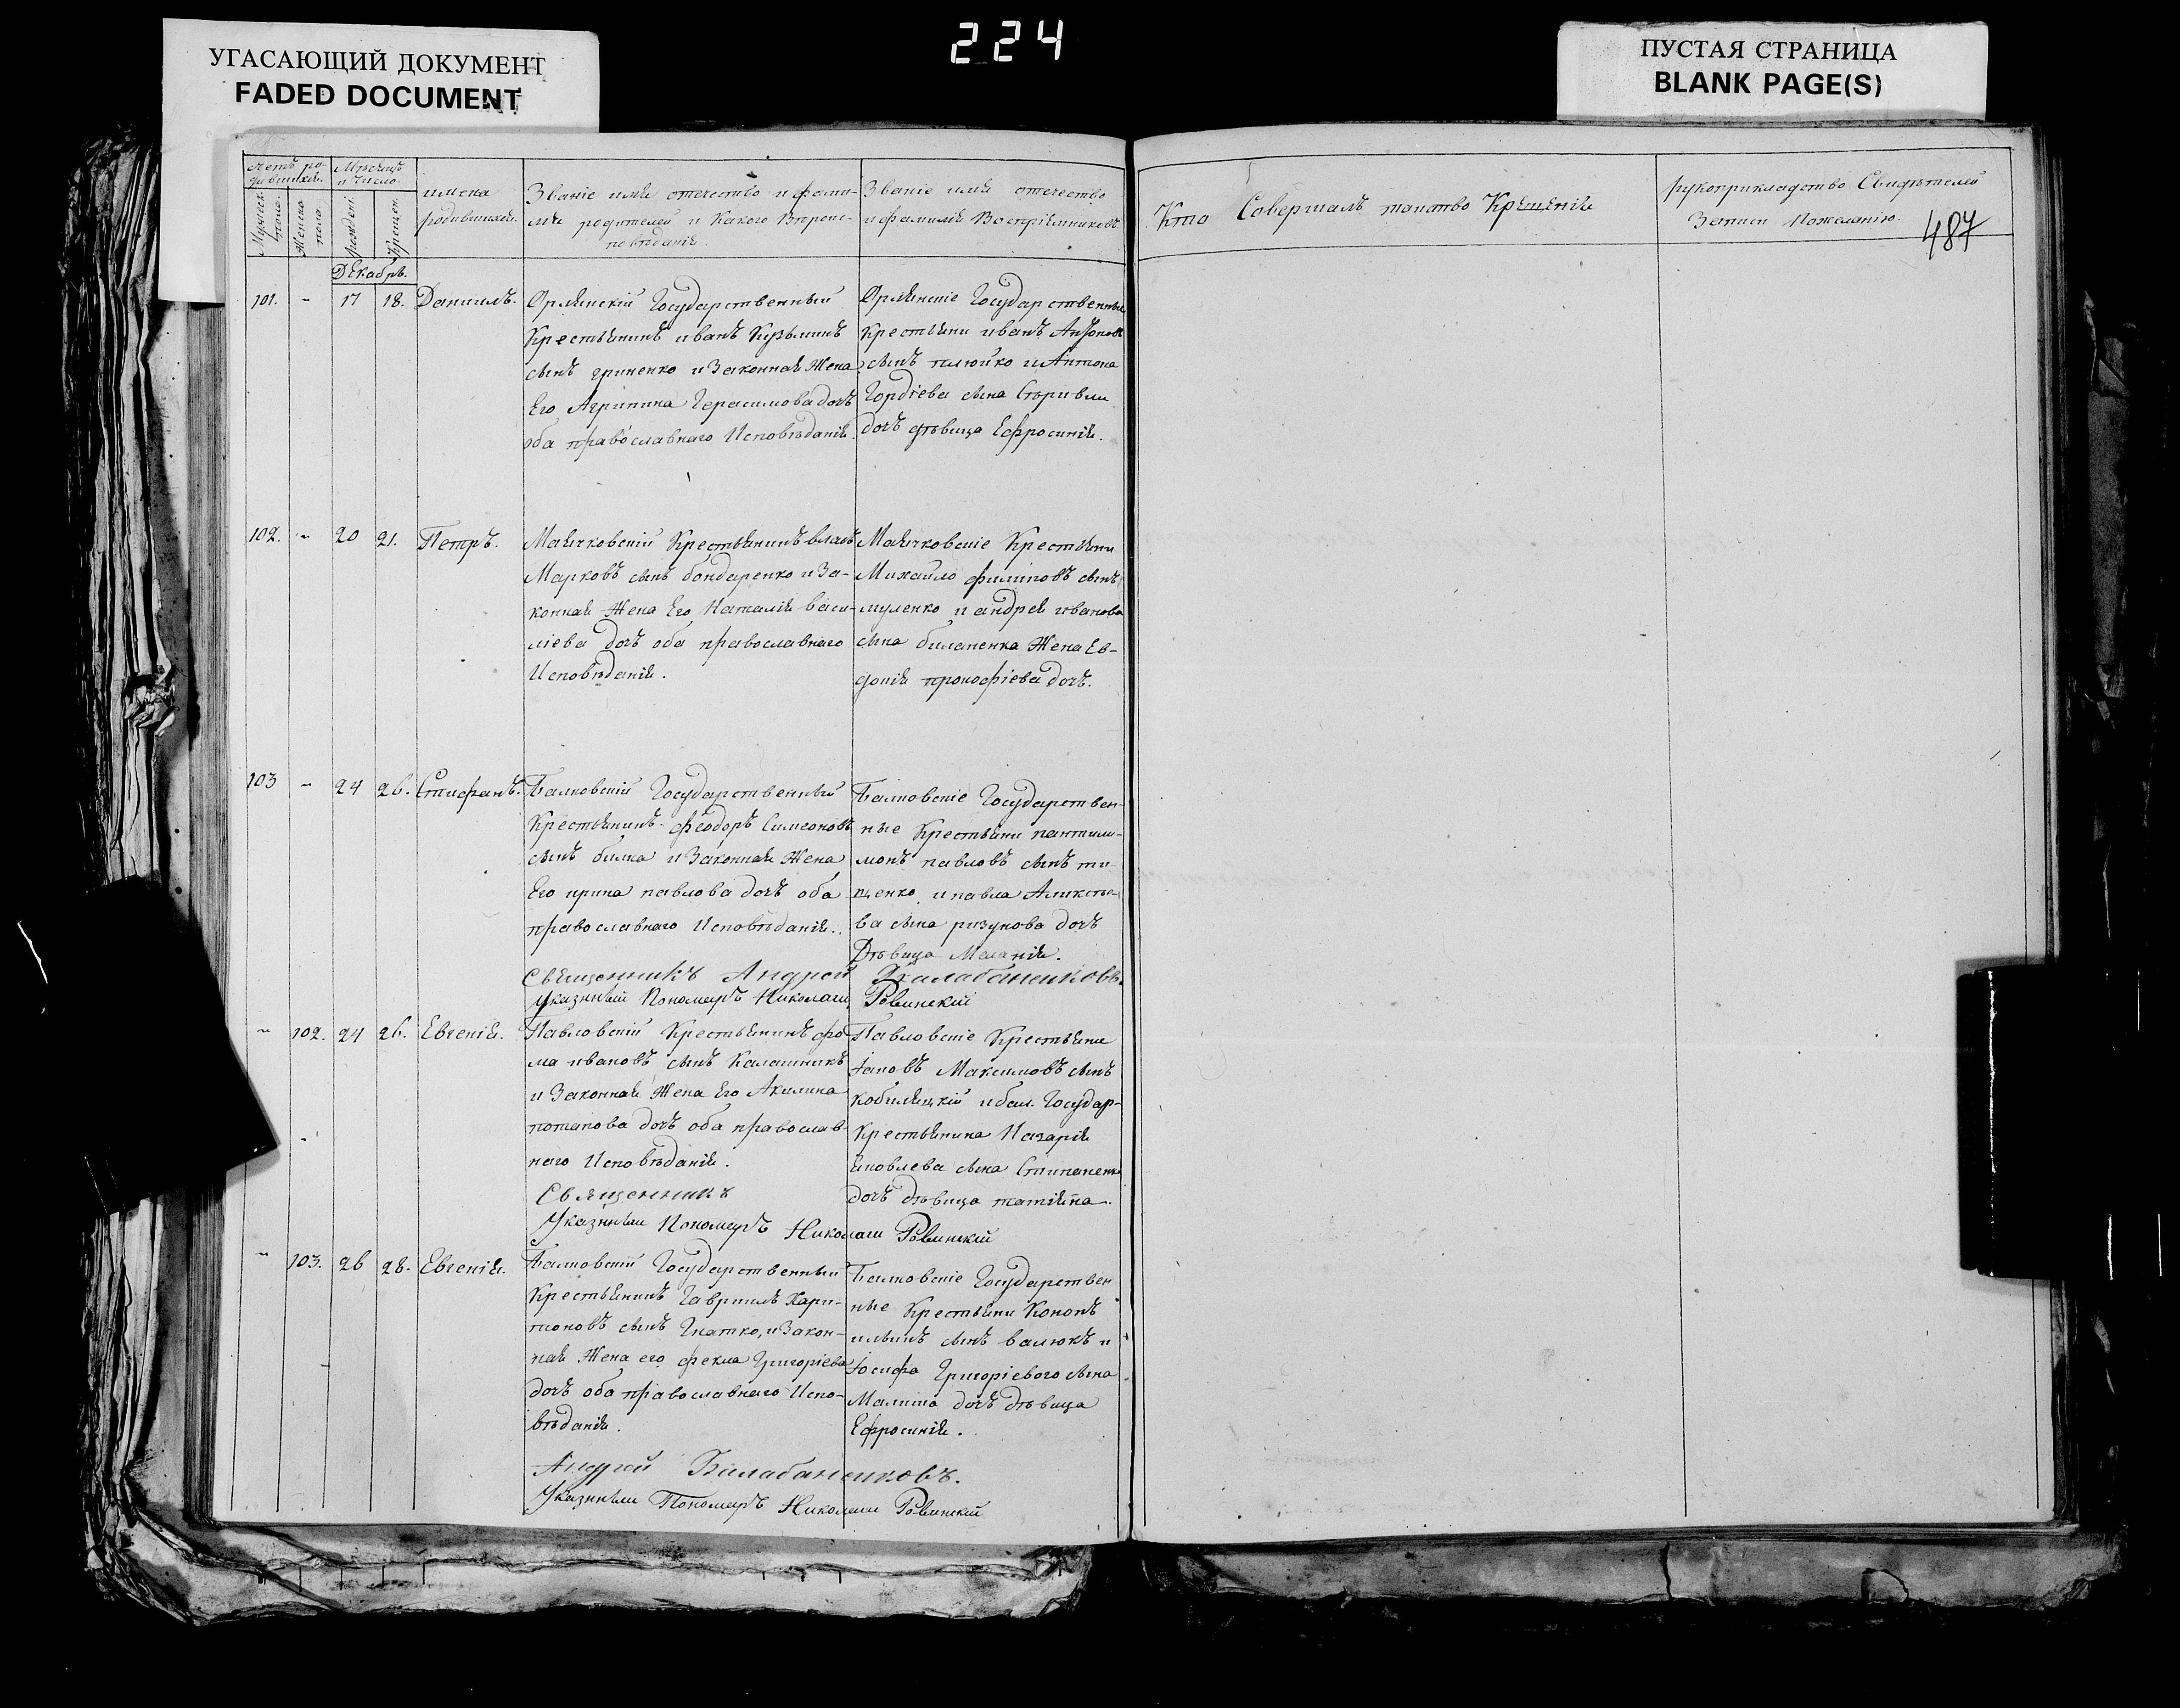 224
УГАСАЮЩИЙ ДОКУМЕНТ
FADED DOCUMENT
ПУСТАЯ СТРАНИЦА
BLANK PAGE(S)
Мужеска пола.
Женска пола.
Мѣсяцъ и Число.
Рожденія.
Крещен.
имена родившихся.
Званіе имя отечество и фами-
лія родителей и Какого Вѣроис-
повѣданія.
Званіе имя отечество
и фамилія Воспріемниковъ.
Кто Совершалъ таинство Крещенія
рукоприкладство Свидѣтелей
Записи Пожеланію.
487
Декабрь.
101. - 17 18. Даниилъ.
Орлянскій Государственный
Крестьянинъ иванъ Кузьминъ
сынъ гриненко и Законная Жена
Его Агрипина Герасимова дочь
оба православнаго Исповѣданія.
Орлянскіе Государственные
Крестьяни иванъ Антоновъ
сынъ плюйко и Антона
Гордіева сына
дочь дѣвица Ефросинія.
102. - 20 21. Петръ.
Маячковскій Крестьянинъ власъ
Марковъ сынъ бондаренко и За-
конная Жена Его Наталія васи-
ліева дочь оба православнаго
Исповѣданія.
Маячковскіе Крестьяни
Михайло филиповъ сынъ
муленко и андрея иванова
сына биланенка Жена Ев-
докія прокофіева дочь.
103 - 24 26. Стефанъ.
Балковскій Государственный
Крестьянинъ феодоръ Симеоновъ
сынъ билка и Законная Жена
Его ирина павлова дочь оба
православнаго Исповѣданія.
Балковскіе Государствен-
ные Крестьяни пантили-
монъ павловъ сынъ ти-
щенко и павла Аликсѣе-
ва сына ризунова дочь
Дѣвица Меланія.
Священникъ Андрей Балабаненковъ.
Указнный Пономарь Николай Ровинскій
- 102. 24 26. Евгенія.
Павловскій Крестьянинъ фо-
ма ивановъ сынъ Калашникъ
и Законная Жена Его Акилина
потапова дочь оба православ-
наго Исповѣданія.
Павловскіе Крестьяни
іаковъ Максимовъ сынъ
кобиляцкій и бал. Государ-
Крестьянина Назарія
яковлева сына Стипаненка
дочь дѣвица татіяна.
Священникъ
Указнный Пономарь Николай Ровинскій
- 103. 26 28. Евгенія.
Балковскій Государственный
Крестьянинъ Гавриилъ Хари-
тоновъ сынъ Гнатко, и Закон-
ная Жена его фекла Григоріева
дочь оба православнаго Испо-
вѣданія.
Балковскіе Государствен
ные Крестьяни Кононъ
ильинъ сынъ валюкъ и
іосифа Григоріевого сына
Малита дочь дѣвица
Ефросинія.
Андрей Балабаненковъ.
Указнный Пономарь Николай Ровинскій